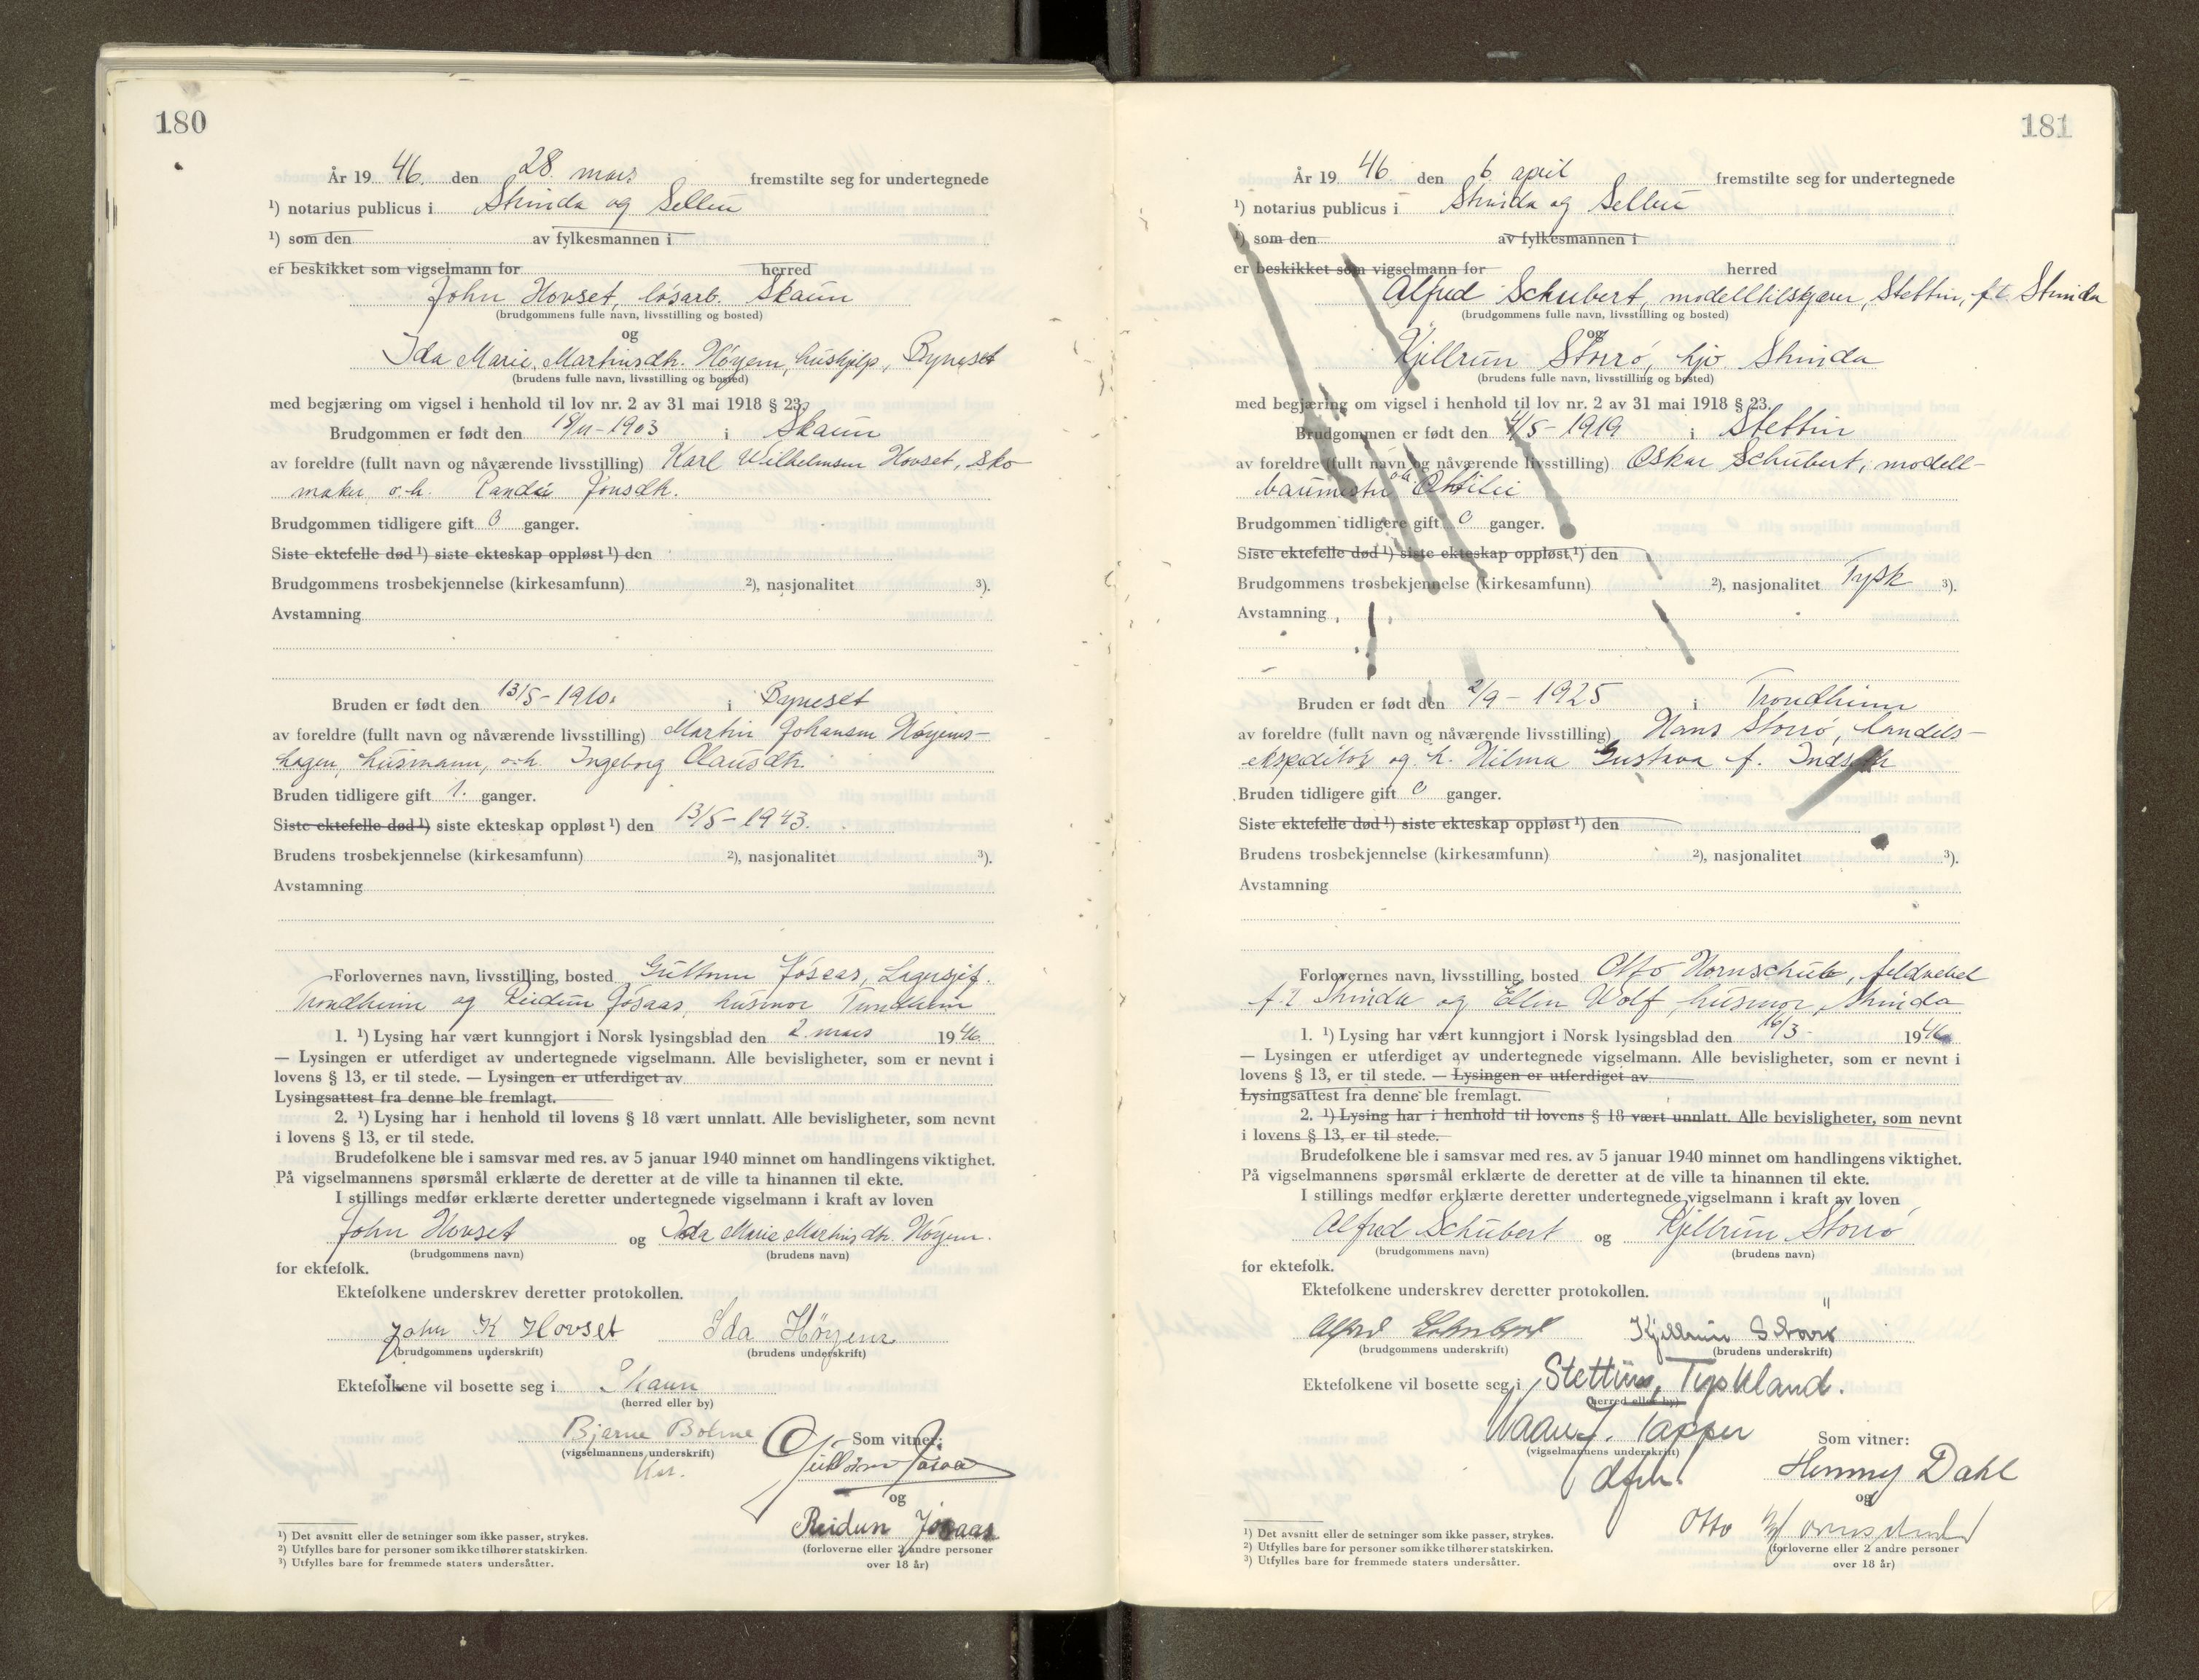 180
År 19 46. den 28. mars fremstilte seg for undertegnede
¹) notarius publicus i Strinda og Selbu
¹) som den av fylkesmannen i
er beskikket som vigselmann for herred
John Hovset, løsarb. Skaun
(brudgommens fulle navn, livsstilling og bosted)
og
Ida Marie Martinsdtr. Høyem, hushjelp, Byneset
(brudens fulle navn, livsstilling og bosted)
med begjæring om vigsel i henhold til lov nr. 2 av 31 mai 1918 § 23.
Brudgommen er født den 18/11-1903 i Skaun
av foreldre (fullt navn og nåværende livsstilling) Karl Wilhelmsen Hovset, sko-
maker o.h. Jonsdtr.
Brudgommen tidligere gift 0 ganger.
Siste ektefelle død ¹) siste ekteskap oppløst ¹) den
Brudgommens trosbekjennelse (kirkesamfunn) ²), nasjonalitet ³).
Avstamning
Bruden er født den 13/5-1910. i Byneset
av foreldre (fullt navn og nåværende livsstilling) Martin Johansen Høyems-
hagen, husmann, o.h. Ingeborg Olausdtr.
Bruden tidligere gift 1. ganger.
Siste ektefelle død ¹) siste ekteskap oppløst ¹) den 13/5-1943.
Brudens trosbekjennelse (kirkesamfunn) ²), nasjonalitet ³).
Avstamning
Forlovernes navn, livsstilling, bosted Guttorm Jøsaas, Lagersjef.
Trondheim og Reidun Jøsaas, husmor Trondheim
1. ¹) Lysing har vært kunngjort i Norsk lysingsblad den 2. mars 1946.
— Lysingen er utferdiget av undertegnede vigselmann. Alle bevisligheter, som er nevnt i
lovens § 13, er til stede. — Lysingen er utferdiget av
Lysingsattest fra denne ble fremlagt.
2. ¹) Lysing har i henhold til lovens § 18 vært unnlatt. Alle bevisligheter, som nevnt
i lovens § 13, er til stede.
Brudefolkene ble i samsvar med res. av 5 januar 1940 minnet om handlingens viktighet.
På vigselmannens spørsmål erklærte de deretter at de ville ta hinannen til ekte.
I stillings medfør erklærte deretter undertegnede vigselmann i kraft av loven
John Hovset og Ida Marie Martinsdtr. Høyem.
(brudgommens navn) (brudens navn)
for ektefolk.
Ektefolkene underskrev deretter protokollen.
John K Hovset Ida Høyem
(brudgommens underskrift) (brudens underskrift)
Ektefolkene vil bosette seg i Skaun
(herred eller by)
Bjarne Bolme Som vitner:
(vigselmannens underskrift) Guttorm Jøsaas
og
Reidun Jøsaas
¹) Det avsnitt eller de setninger som ikke passer, strykes.
²) Utfylles bare for personer som ikke tilhører statskirken.
³) Utfylles bare for fremmede staters undersåtter.
(forloverne eller 2 andre personer
over 18 år)
181
År 19 46 den 6 april fremstilte seg for undertegnede
¹) notarius publicus i Strinda og Selbu
¹) som den av fylkesmannen i
er beskikket som vigselmann for herred
Alfred Schubert, modelltilskjærer, Stettin, f.t. Strinda
(brudgommens fulle navn, livsstilling og bosted)
og
Kjellrun Storrø, hjv. Strinda
(brudens fulle navn, livsstilling og bosted)
med begjæring om vigsel i henhold til lov nr. 2 av 31 mai 1918 § 23.
Brudgommen er født den 4/5-1919 i Stettin
av foreldre (fullt navn og nåværende livsstilling) Oskar Schubert, modell-
baumester o.h. Ottilie
Brudgommen tidligere gift 0 ganger.
Siste ektefelle død ¹) siste ekteskap oppløst ¹) den
Brudgommens trosbekjennelse (kirkesamfunn) ²), nasjonalitet Tysk ³).
Avstamning
Bruden er født den 2/9-1925 i Trondheim
av foreldre (fullt navn og nåværende livsstilling) Hans Storrø, handels-
ekspeditør og h. Hilma Gustava f. Indseth
Bruden tidligere gift 0 ganger.
Siste ektefelle død ¹) siste ekteskap oppløst ¹) den
Brudens trosbekjennelse (kirkesamfunn) ²), nasjonalitet ³).
Avstamning
Forlovernes navn, livsstilling, bosted Otto Hornschub, feldwebel
f.t. Strinda og Ellen Wolf, husmor, Strinda
1. ¹) Lysing har vært kunngjort i Norsk lysingsblad den 16/3- 1946
— Lysingen er utferdiget av undertegnede vigselmann. Alle bevisligheter, som er nevnt i
lovens § 13, er til stede. — Lysingen er utferdiget av
Lysingsattest fra denne ble fremlagt.
2. ¹) Lysing har i henhold til lovens § 18 vært unnlatt. Alle bevisligheter, som nevnt
i lovens § 13, er til stede.
Brudefolkene ble i samsvar med res. av 5 januar 1940 minnet om handlingens viktighet.
På vigselmannens spørsmål erklærte de deretter at de ville ta hinannen til ekte.
I stillings medfør erklærte deretter undertegnede vigselmann i kraft av loven
Alfred Schubert og Kjellrun Storrø
(brudgommens navn) (brudens navn)
for ektefolk.
Ektefolkene underskrev deretter protokollen.
Alfred Schubert Kjellrun Storrö
(brudgommens underskrift) (brudens underskrift)
Ektefolkene vil bosette seg i Stettin, Tyskland.
(herred eller by)
Tapper
(vigselmannens underskrift) Som vitner:
dfm. Henny Dahl
og
Otto
¹) Det avsnitt eller de setninger som ikke passer, strykes.
²) Utfylles bare for personer som ikke tilhører statskirken.
³) Utfylles bare for fremmede staters undersåtter.
(forloverne eller 2 andre personer
over 18 år)